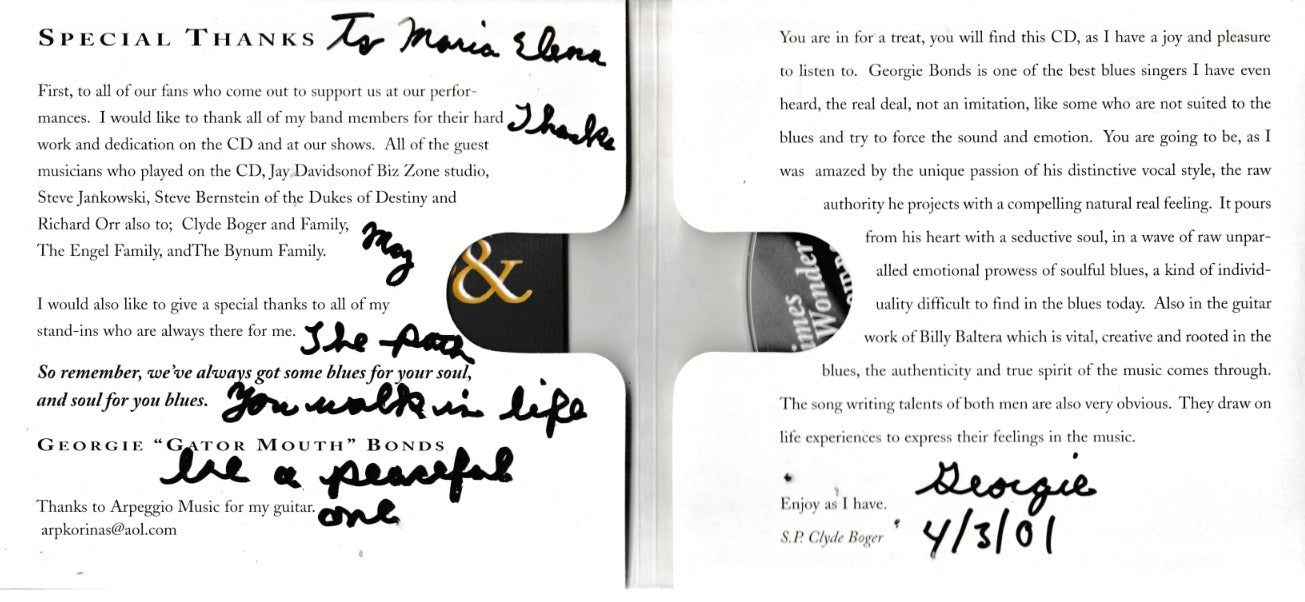 SPECIAL THANKS To Maria Elena
First, to all of our fans who come out to support us at our perfor-
mances. I would like to thank all of my band members for their hard
work and dedication on the CD and at our shows. All of the guest
musicians who played on the CD, Jay Davidsonof Biz Zone studio,
Steve Jankowski, Steve Bernstein of the Dukes of Destiny and
Richard Orr also to; Clyde Boger and Family,
The Engel Family, andThe Bynum Family.
Thanks
May
I would also like to give a special thanks to all of my
stand-ins who are always there for me.
The path
So remember, we've always got some blues for your soul,
and soul for you blues.
You walk in life
GEORGIE "GATOR MOUTH" BONDS
be a peaceful
one
Thanks to Arpeggio Music for my guitar.
arpkorinas@aol.com
&
imes
Wonder
You are in for a treat, you will find this CD, as I have a joy and pleasure
to listen to. Georgie Bonds is one of the best blues singers I have even
heard, the real deal, not an imitation, like some who are not suited to the
blues and try to force the sound and emotion. You are going to be, as I
was amazed by the unique passion of his distinctive vocal style, the raw
authority he projects with a compelling natural real feeling. It pours
from his heart with a seductive soul, in a wave of raw unpar-
alled emotional prowess of soulful blues, a kind of individ-
uality difficult to find in the blues today. Also in the guitar
work of Billy Baltera which is vital, creative and rooted in the
blues, the authenticity and true spirit of the music comes through.
The song writing talents of both men are also very obvious. They draw on
life experiences to express their feelings in the music.
Enjoy as I have.
S.P. Clyde Boger
Georgie
4/3/01